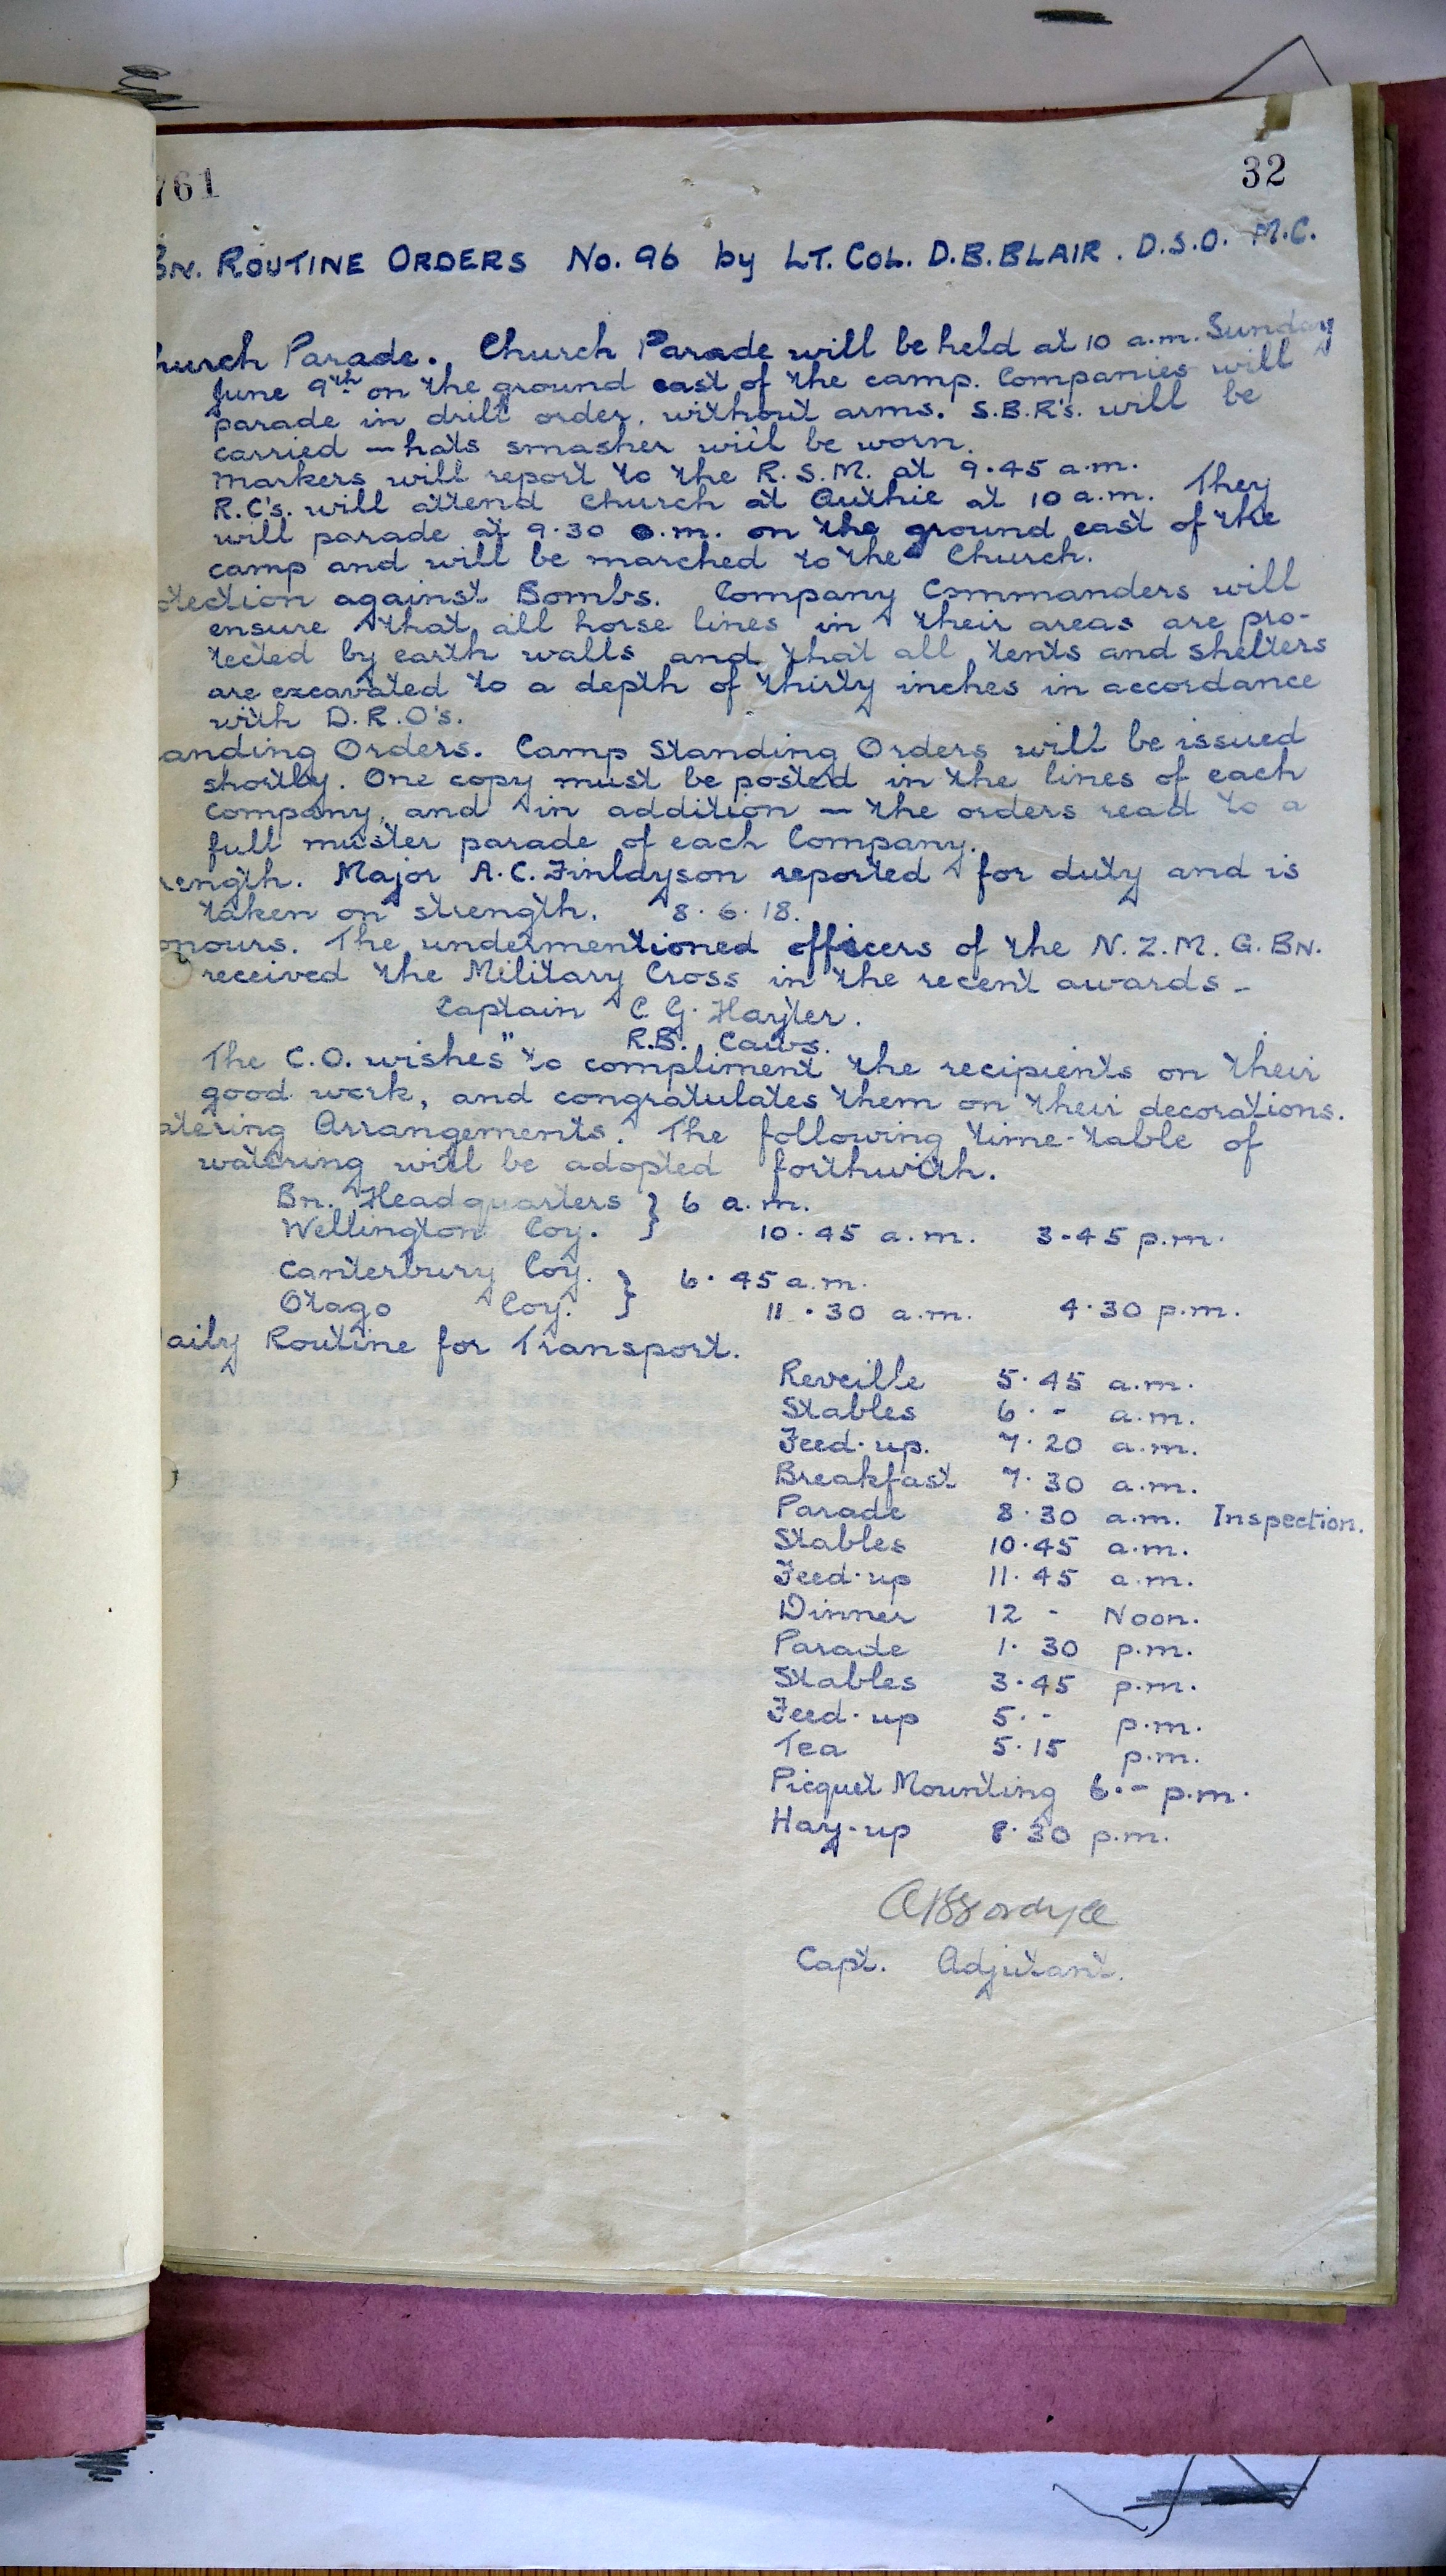 761
32
Bn. Routine Orders No. 96 by Lt. Col. D.B. Blair. D.S.O. M.C.
hurch Parade. Church Parade will be held at 10 a.m. Sunday
June 9th on the ground east of the camp. Companies will
parade in drill order, without arms. S.B.R's. will be
carried — hats smasher will be worn.
Markers will report to the R.S.M. at 9.45 a.m.
R.C's. will attend church at Authie at 10 a.m. They
will parade at 9.30 a.m. on the ground east of the
camp and will be marched to the Church.
otection against Bombs. Company Commanders will
ensure that all horse lines in their areas are pro-
tected by earth walls and that all tents and shelters
are excavated to a depth of thirty inches in accordance
with D.R.O's.
anding Orders. Camp Standing Orders will be issued
shortly. One copy must be posted in the lines of each
Company, and in addition — the orders read to a
full muster parade of each Company.
rength. Major A.C. Finlayson reported for duty and is
taken on strength. 8.6.18.
onours. The undermentioned officers of the N.Z.M.G. Bn.
received the Military Cross in the recent awards -
Captain C G. Hayter.
" R.B. Caws.
The C.O. wishes to compliment the recipients on their
good work, and congratulates them on their decorations.
atering Arrangements. The following time-table of
watering will be adopted forthwith.
Bn. Headquarters } 6 a.m.
Wellington Coy. } 10.45 a.m. 3.45 p.m.
Canterbury Coy. } 6.45 a.m.
Otago Coy. } 11.30 a.m. 4.30 p.m.
aily Routine for Transport.
Reveille 5.45 a.m.
Stables 6.- a.m.
Feed-up. 7.20 a.m.
Breakfast 7.30 a.m.
Parade 8.30 a.m. Inspection.
Stables 10.45 a.m.
Feed-up 11.45 a.m.
Dinner 12 - Noon.
Parade 1.30 p.m.
Stables 3.45 p.m.
Feed-up 5.- p.m.
Tea 5.15 p.m.
Picquet Mounting 6.- p.m.
Hay-up 8.30 p.m.
Capt. Adjutant.